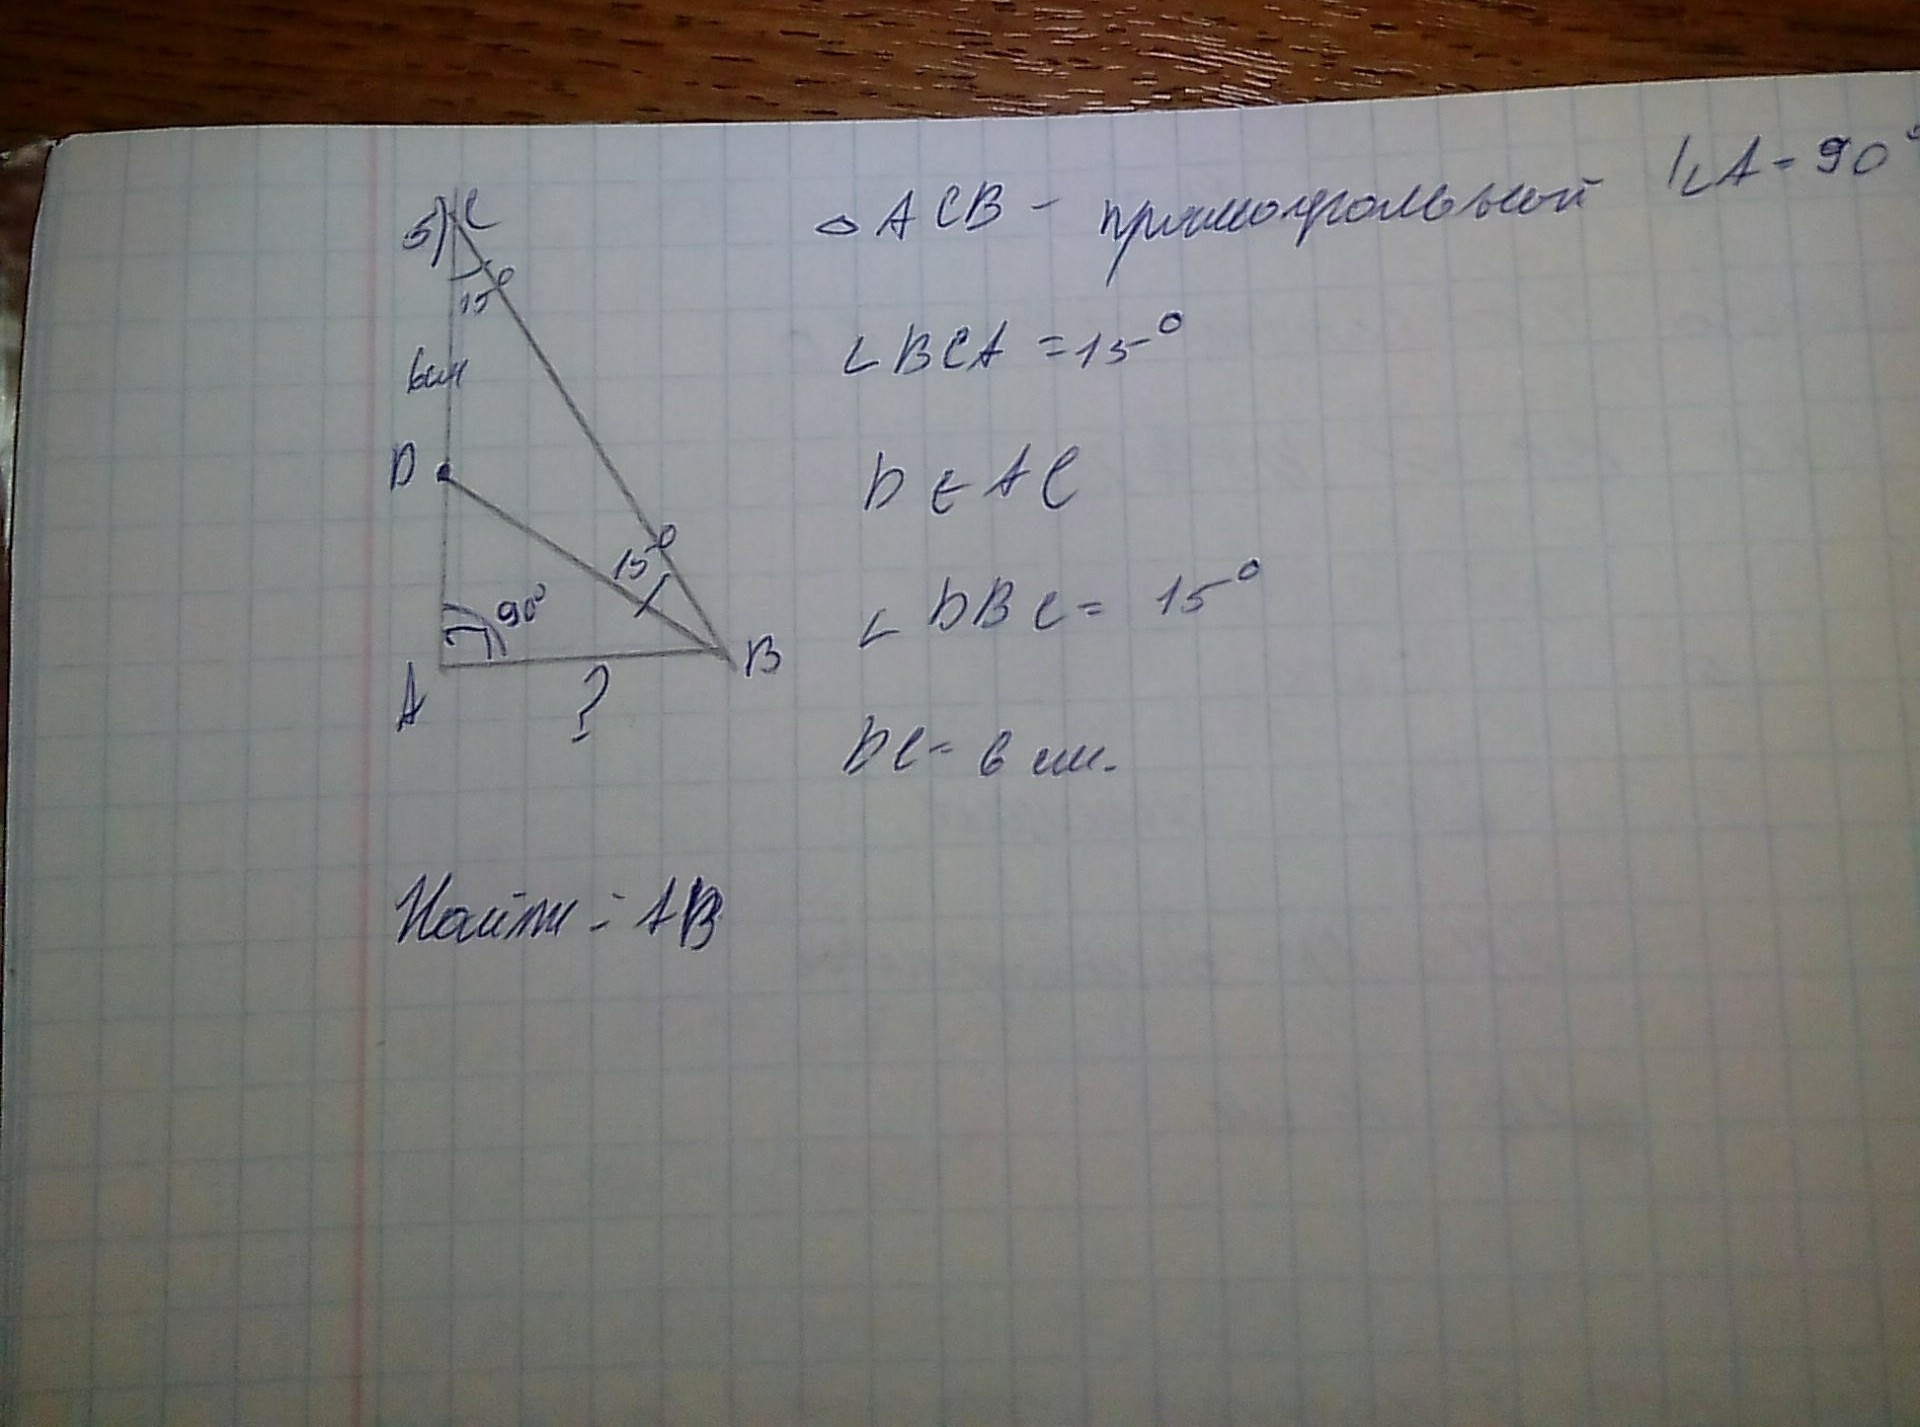 5) C
15°
6см
D
15°
90°
A
B
?
△ ACB - прямоугольный ∟∠A = 90°
∠ BCA = 15°
D ∈ AC
∠ DBC = 15°
DC = 6 см.
Найти: AB